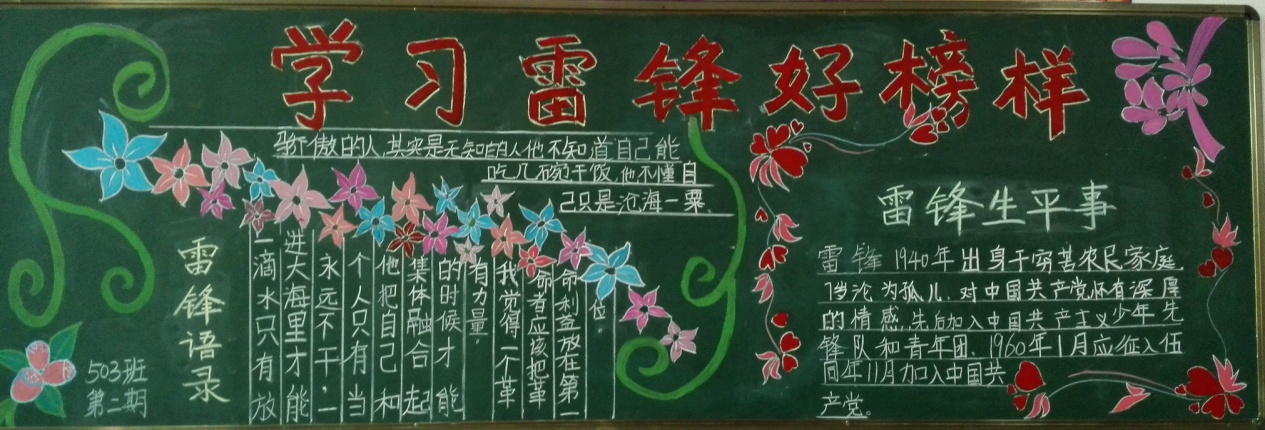 学习雷锋好榜样
骄傲的人,其实是无知的人他不知道自己能
吃几碗干饭,他不懂自
己只是沧海一粟.
雷锋语录
一滴水只有放
进大海里才能
永远不干,一
个人只有当
他把自己和
集体融合起
的时候才能
有力量.
我觉得一个革
命者应该把革
命利益放在第一
位
503班
第二期
雷锋生平事
雷锋1940年出身于穷苦农民家庭
7岁沦为孤儿.对中国共产党怀有深厚
的情感,先后加入中国共产主义少年先
锋队和青年团.1960年1月应征入伍
同年11月加入中国共
产党。